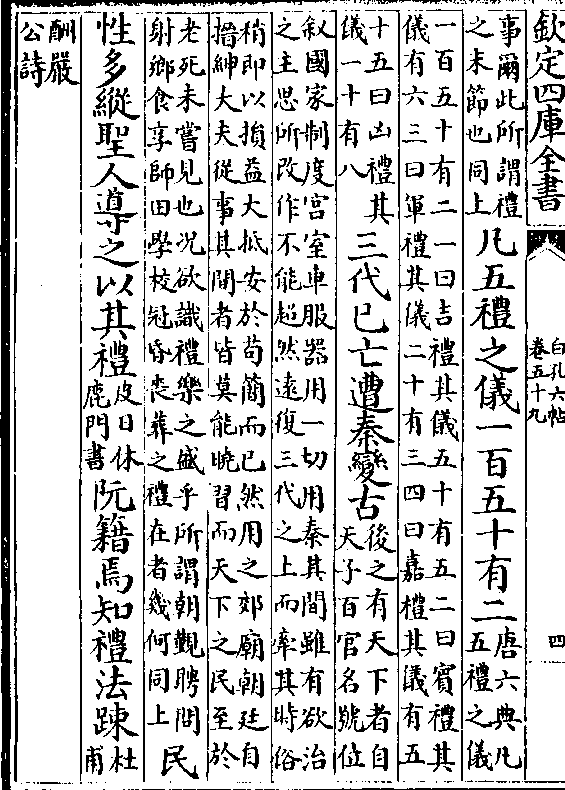 欽定四庫全書
白孔六帖
卷五十九
四
事爾此所謂禮
之末節也同上
凡五禮之儀一百五十有二
唐六典凡
五禮之儀
一百五十有二一曰吉禮其儀五十有五二曰賓禮其
儀有六三曰軍禮其儀二十有三四曰嘉禮其儀有五
十五曰凶禮其
儀一十有八
三代已亡遭秦變古
後之有天下者自
天子百官名號位
叙國家制度宮室車服器用一切用秦其間雖有欲治
之主思所改作不能超然遠復三代之上而牽其時俗
稍即以損益大抵安於苟簡而已然用之郊廟朝廷自
搢紳大夫從事其間者皆莫能曉習而天下之民至於
老死未嘗見也况欲識禮樂之盛乎所謂朝覲聘問
射鄉食享師田學校冠昏喪葬之禮在者幾何同上
民
性多縱聖人導之以其禮
皮日休
鹿門書
阮籍焉知禮法踈
杜
甫
酬嚴
公詩